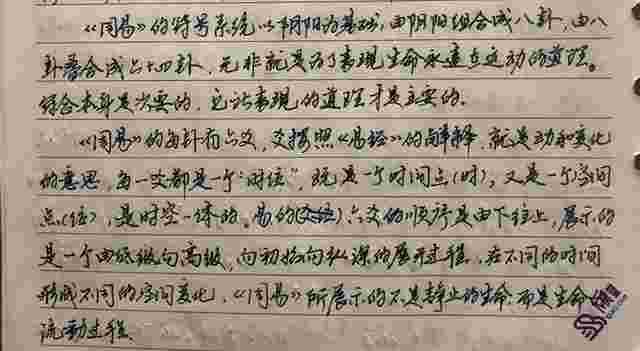 《周易》的符号系统以阴阳为基础,由阴阳组合成八卦,由八
卦叠合成六十四卦,无非就是为了表现生命永远在运动的道理。
结合本身是次要的,它所表现的道理才是主要的。
《周易》的每卦有六爻,爻按照《易经》的解释,就是动和变化
的意思,每一爻都是一个“时位”,既是一个时间点(时),又是一个空间
点(位),是时空一体的。易的(爻位)六爻的顺序是由下往上,展示的
是一个由低级向高级,向初始向纵深的展开过程,在不同的时间
形成不同的空间变化,《周易》所展示的不是静止的生命,而是生命
流动过程.